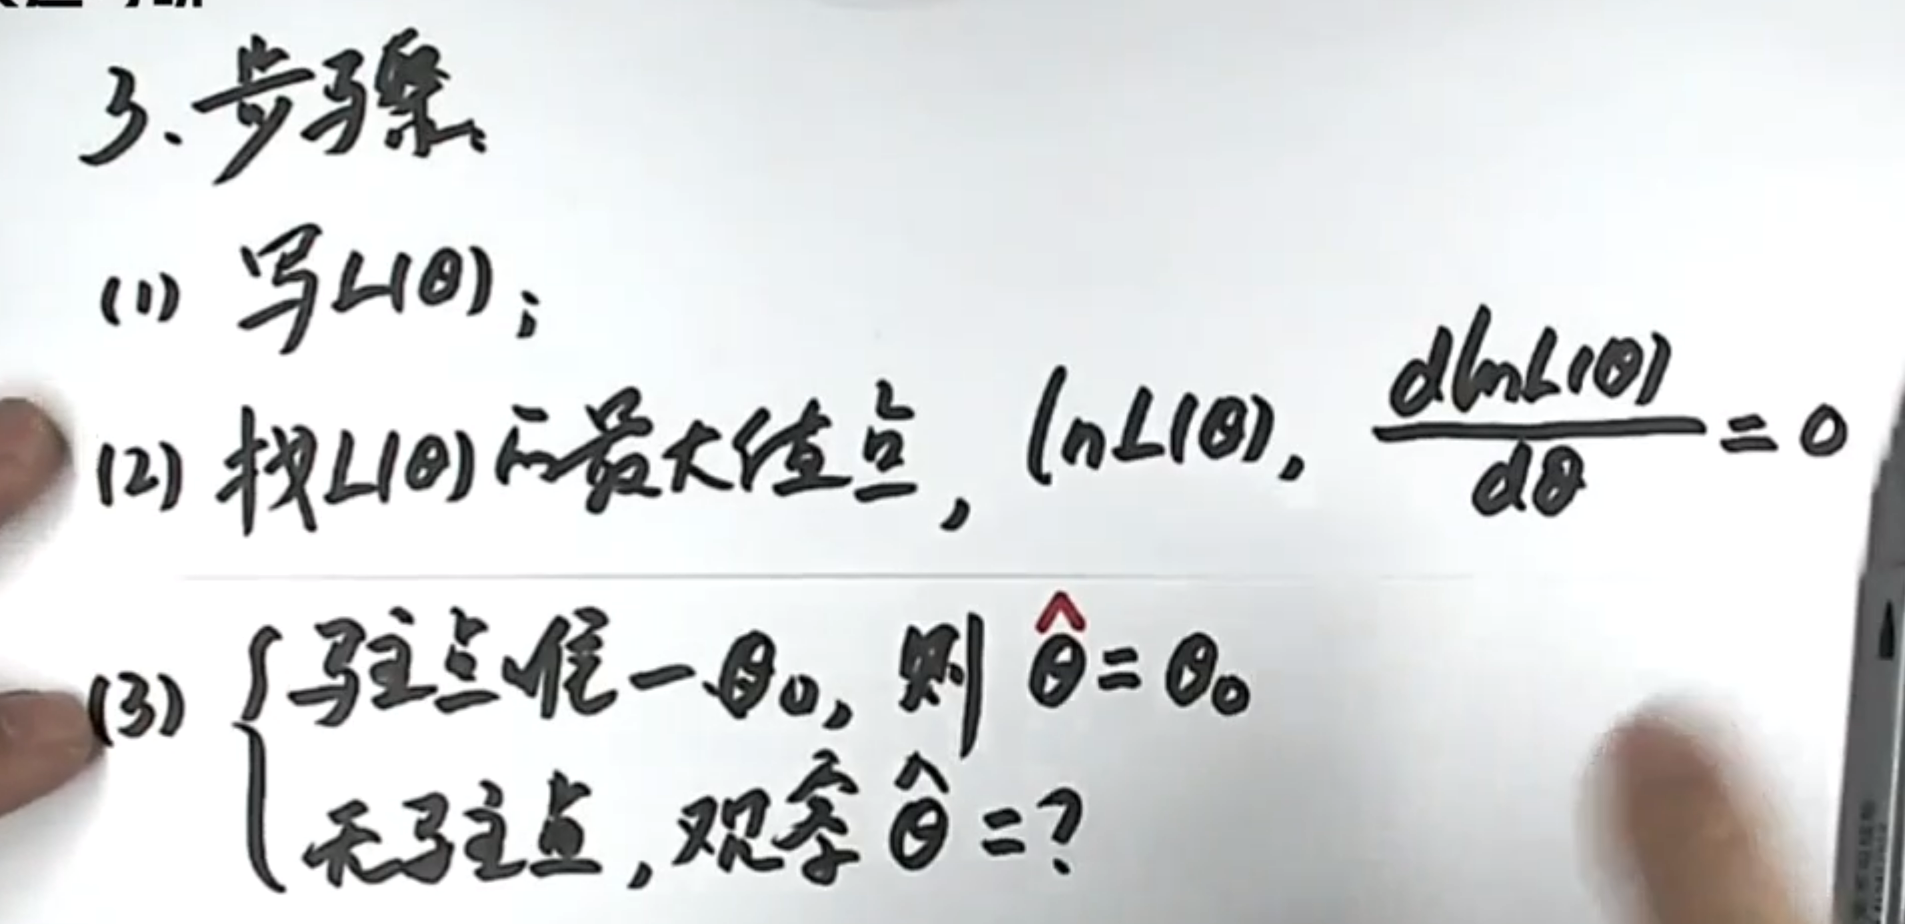 3. 步骤
(1) 写L(θ);
(2) 找L(θ)的最大值点, lnL(θ), dlnL(θ)/dθ = 0
(3) { 驻点唯一θ₀, 则 θ̂ = θ₀
无驻点, 观察 θ̂ = ?